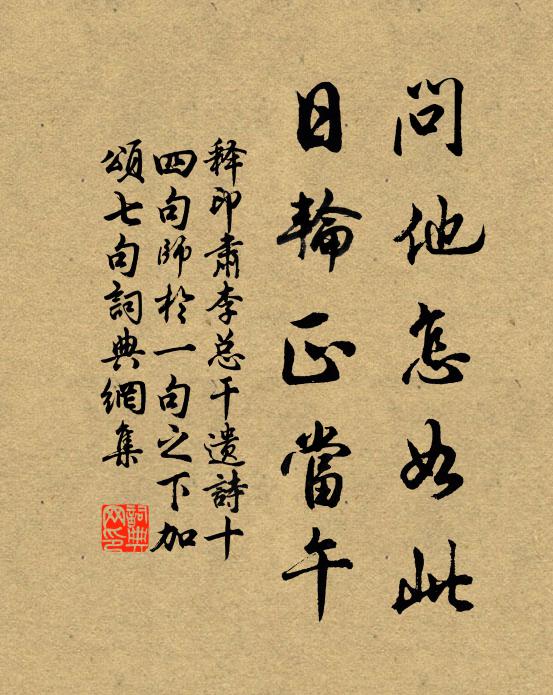 問他怎如此
日輪正當午
释印肅李总干遗詩十
四句師於一句之下加
頌七句詞典網集
詞典网印